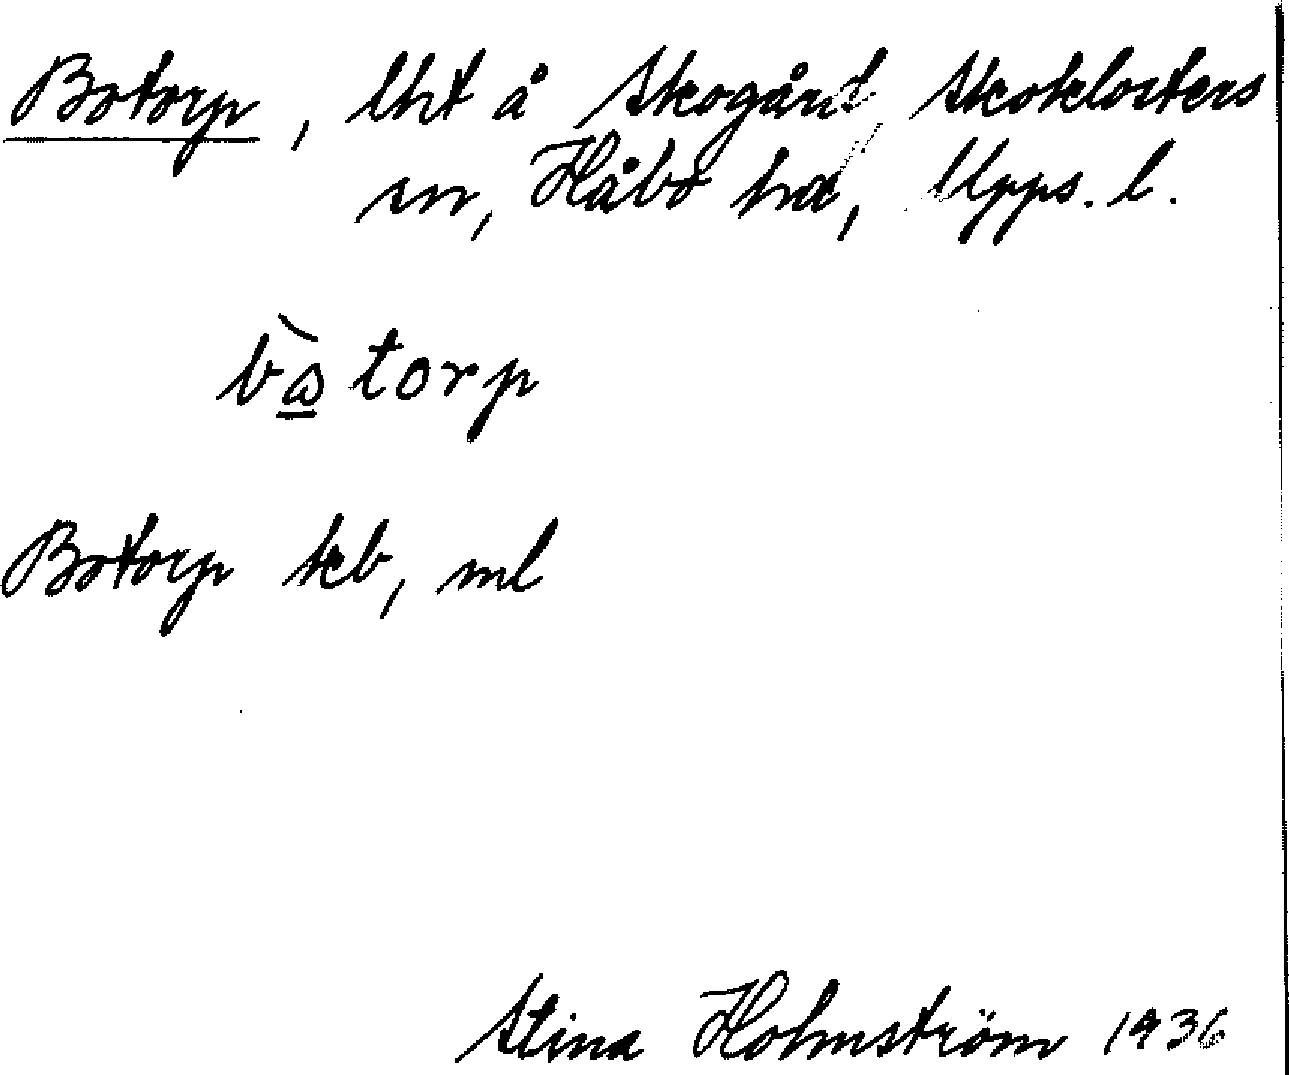 Botorp, lht å Skogård Skoklosters
sn, Håbo hd, Upps. l.
bὼ̲ torp
Botorp kb, ml
Stina Holmström 1936